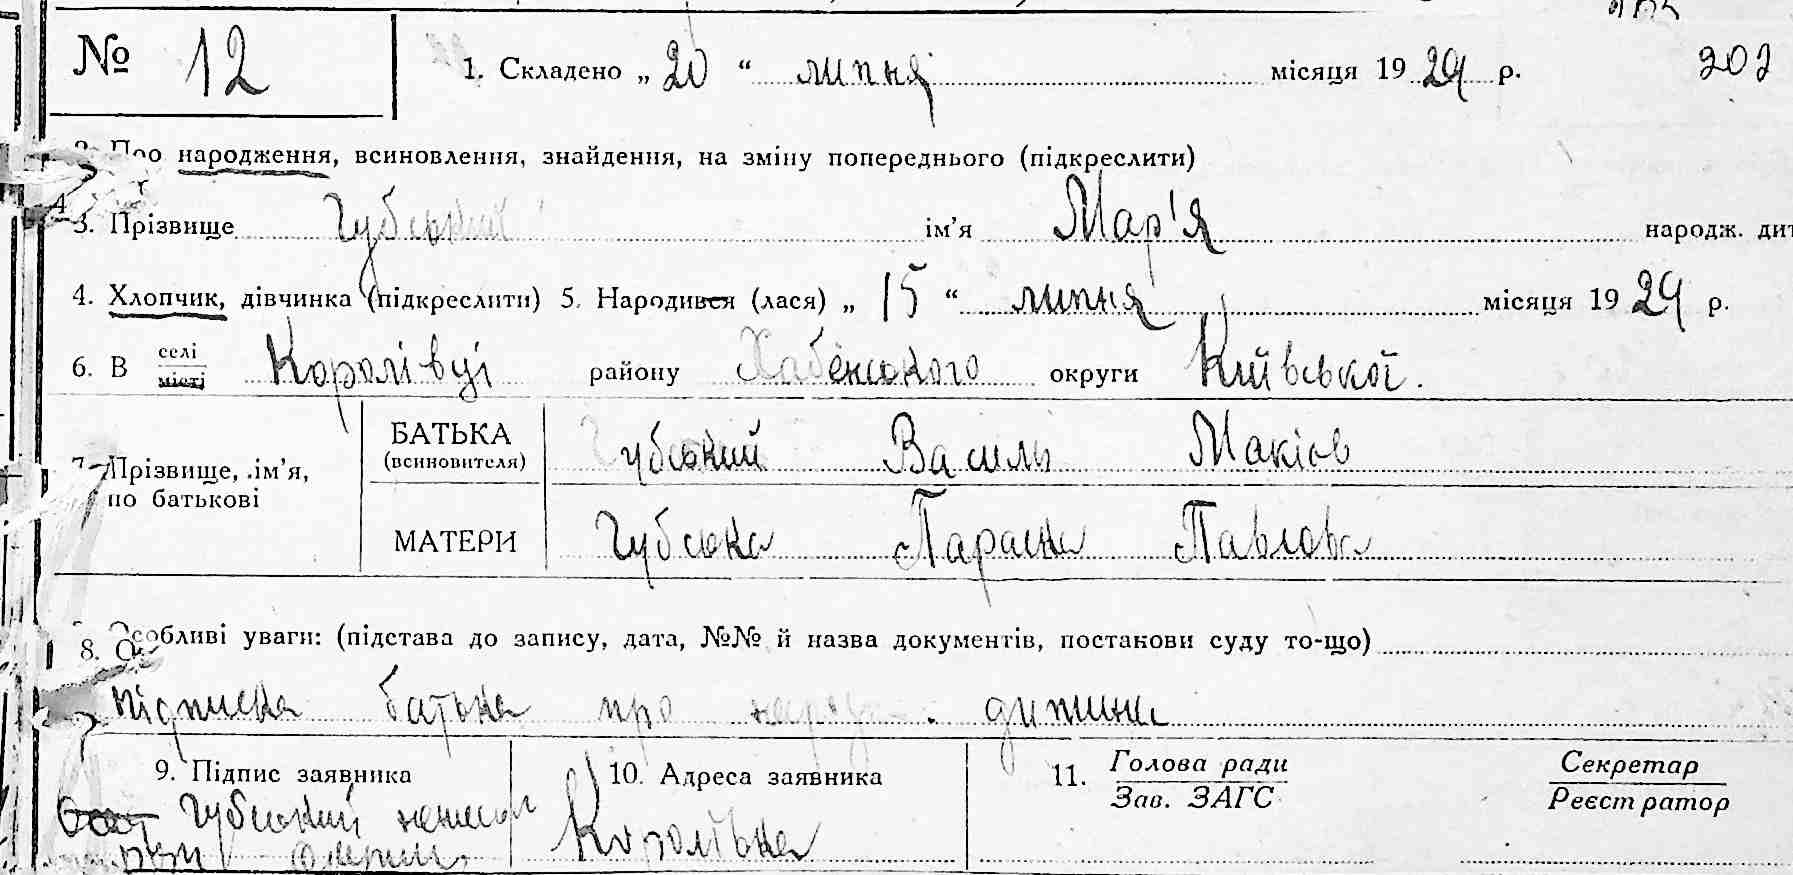 № 12 1. Складено „ 20 “ липня місяця 1929 р. 202
2. Про народження, всиновлення, знайдення, на зміну попереднього (підкреслити)
3. Прізвище Губський ім’я Мар'я народж. дит
4. Хлопчик, дівчинка (підкреслити) 5. Народився (лася) „ 15 “ липня місяця 1929 р.
6. В селі місті Королівці району Хабенського округи Київської.
7. Прізвище, ім’я, по батькові
БАТЬКА (всиновителя) Губський Василь Макіов
МАТЕРИ Губська Параска Павлова
8. Особливі уваги: (підстава до запису, дата, №№ й назва документів, постанови суду то-що)
підписка батька про народж. дитини
9. Підпис заявника 10. Адреса заявника 11. Голова ради Секретар
Зав. ЗАГС Реєстратор
Губський Королівка